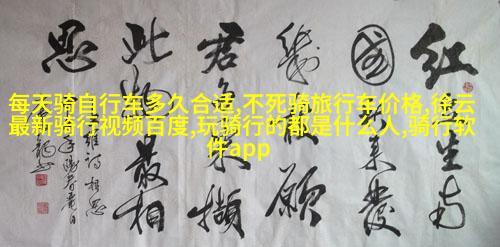 每天骑自行车多久合适,不死骑旅行车价格,徐云
最新骑行视频百度,玩骑行的都是什么人,骑行软
件app
红生南
國来發
幾願
君多擷
此物最相
思